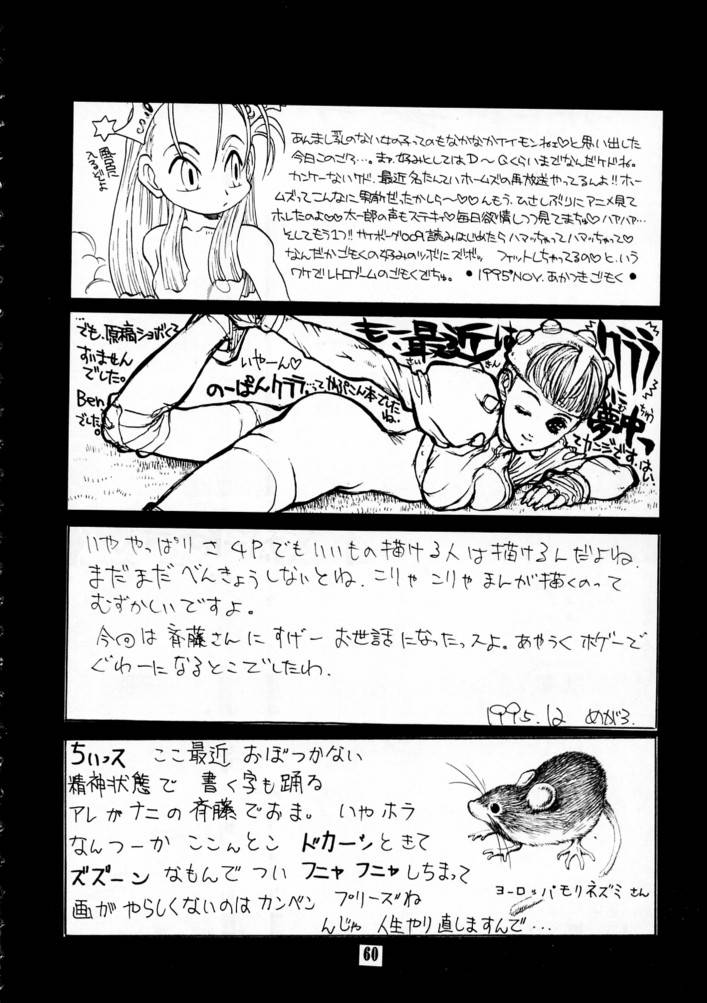 あんまし乳のない女の子ってのもなかなかイイモンねェ♡と思い出した
今日このごろ…。まァ、好みとしてはD〜Gくらいまでなんだケドね。
カンケーないケド、最近名たんていホームズの再放送やってるんよ!!ホー
ムズってこんなに男前だったかしら〜♡♡♡んもう、ひさしぶりにアニメ見て
ホレたのよ♡♡太一郎の声もステキ♡毎日欲情しつつ見てまちゅ♡ハァハァ…
そしてもう1つ!!サイボーグ009読みはじめたらハマっちゃってハマっちゃって♡
なんだかごもくの好みのツボにズボッ。フィットしちゃってるの♡と、いう
ワケでレトロゲームのごもくでちゅ。●1995°NOV.あかつきごもく●
でも、原稿ショボくて
すいません
でした。
Ben
でした。
いやーん♡
もー、最近は
さい きん
クララ
に
夢中っ
む ちゅう
てカンジです、はい。
のーぱんクララ
いややっぱりさ4P.でもいいもの描ける人は描けるんだよね.
まだまだべんきょうしないとね.こりゃこりゃまんが描くのって
むずかしいですよ。
今回は斉藤さんにすげーお世話になったっスよ。あやうくボゲーで
ぐわーになるとこでしたわ.
1995.12 めがろ.
ちいっス ここ最近 おぼつかない
精神状態で 書く字も踊る
アレがナニの斉藤でおま。いやホラ
なんつーか ここんとこ ドカーンときて
ズズーン なもんで つい フニャ フニャ しちまって
画が やらしくないのは カンベン プリーズね
んじゃ 人生やり直しますんで…
ヨーロッパモリネズミさん
60